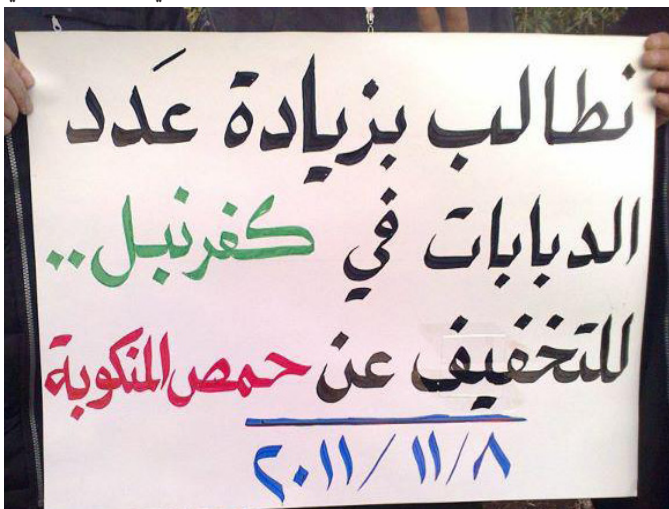 نطالب بزيادة عَدد
الدبابات في كفرنبل..
للتخفيف عن حمص المنكوبة
٢٠١١/١١/٨